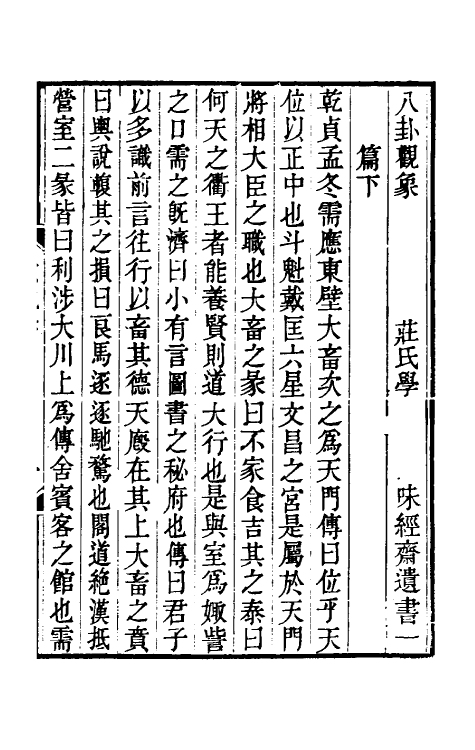 八卦觀象　莊氏學　味經齋遺書一
篇下
乾貞孟冬需應東壁大畜次之爲天門傳曰位乎天
位以正中也斗魁戴匡六星文昌之宮是屬於天門
將相大臣之職也大畜之彖曰不家食吉其之泰曰
何天之衢王者能養賢則道大行也是與室爲娵訾
之口需之旣濟曰小有言圖書之秘府也傳曰君子
以多識前言往行以畜其德天廏在其上大畜之賁
曰輿說輹其之損曰良馬逐逐馳騖也閣道絶漢抵
營室二彖皆曰利涉大川上爲傳舍賓客之館也需